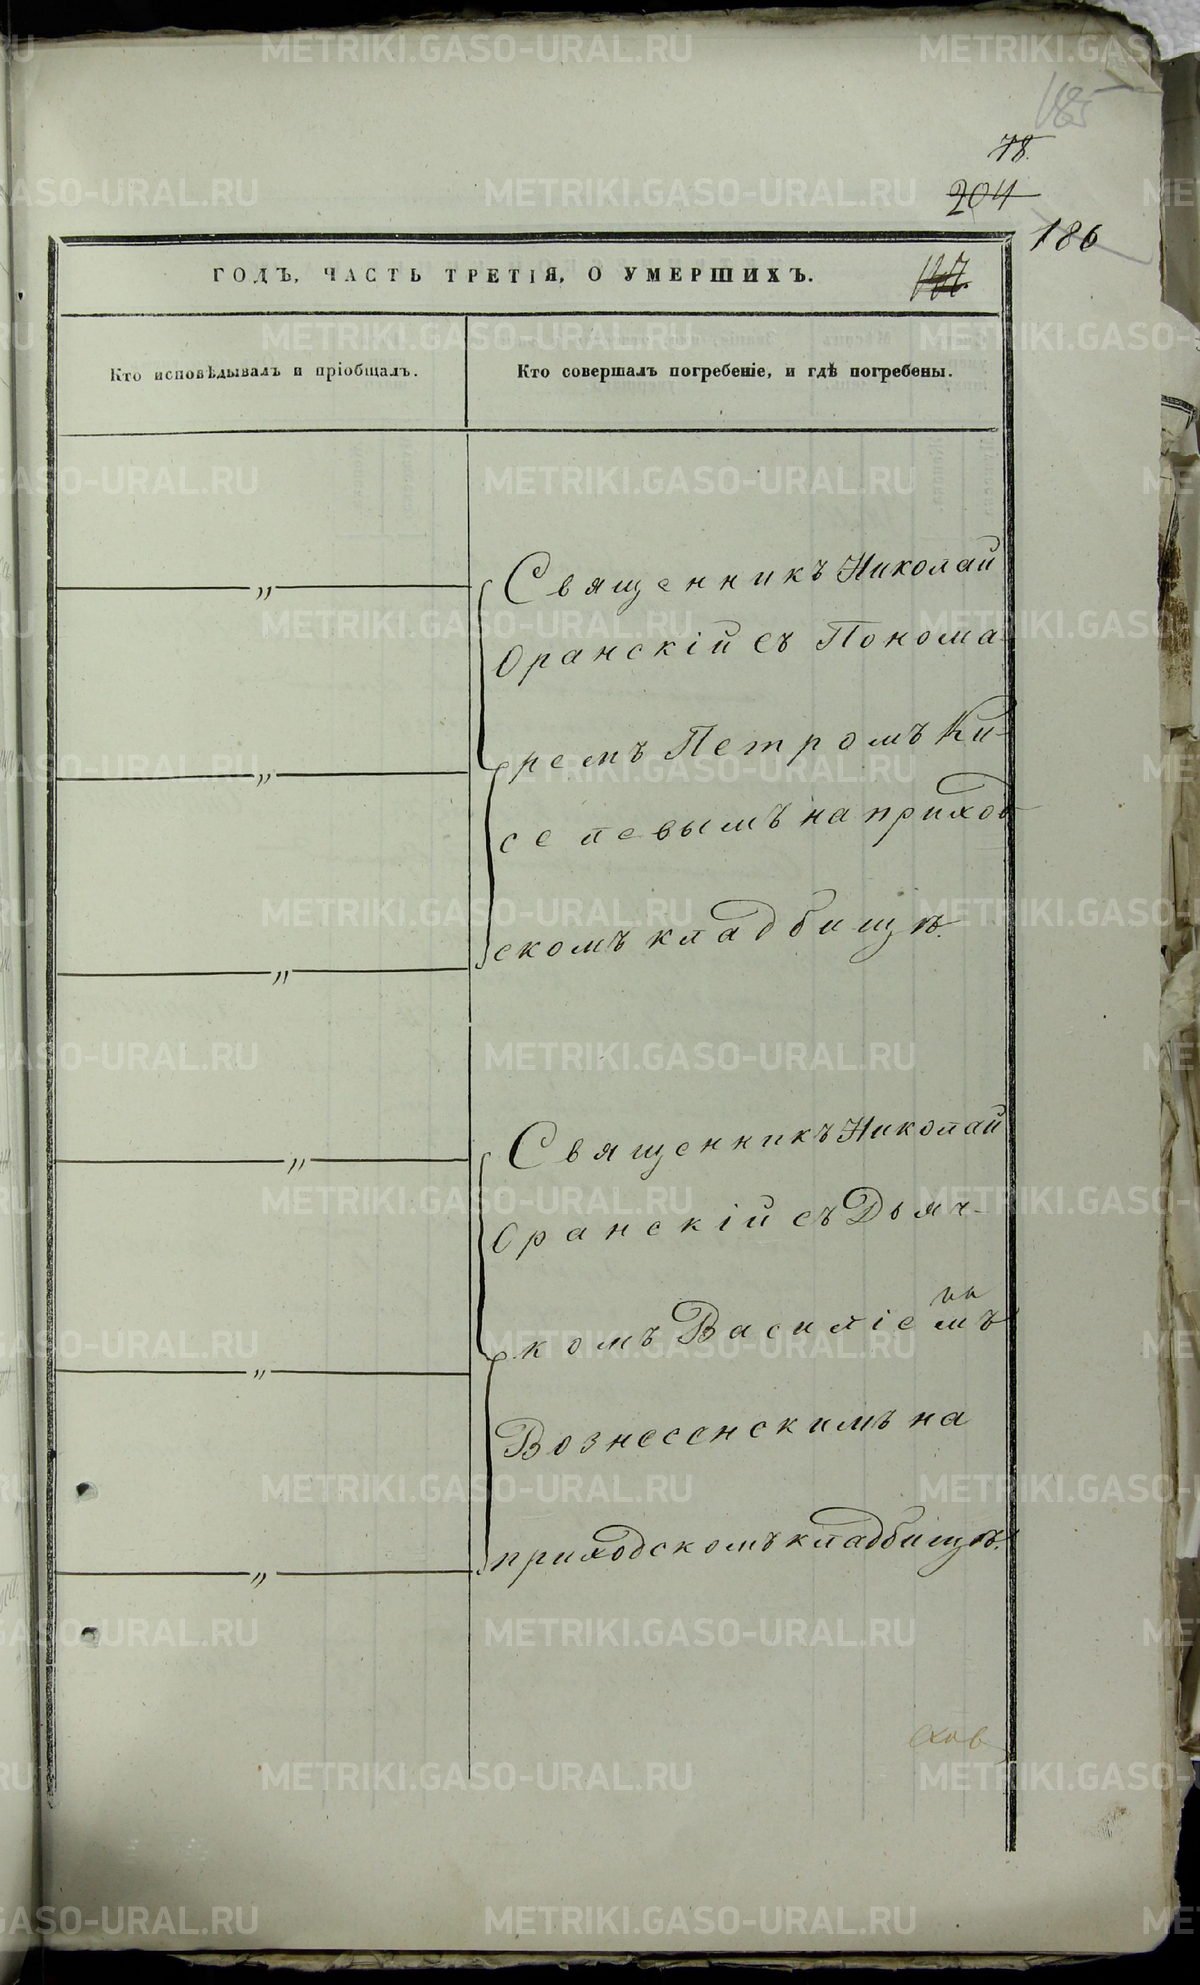 185
78.
204
186
ГОДЪ, ЧАСТЬ ТРЕТІЯ, О УМЕРШИХЪ.
Кто исповѣдывалъ и пріобщалъ.
Кто совершалъ погребеніе, и гдѣ погребены.
„
Священникъ Николай
Оранскій съ Понома-
ремъ Петромъ Ки-
„
селевымъ на приход
скомъ кладбищѣ.
„
Священникъ Николай
„
Оранскій съ Дьяч-
комъ Василіемъ
„
Вознесенскимъ на
приходскомъ кладбищѣ.
„
METRIKI.GASO-URAL.RU